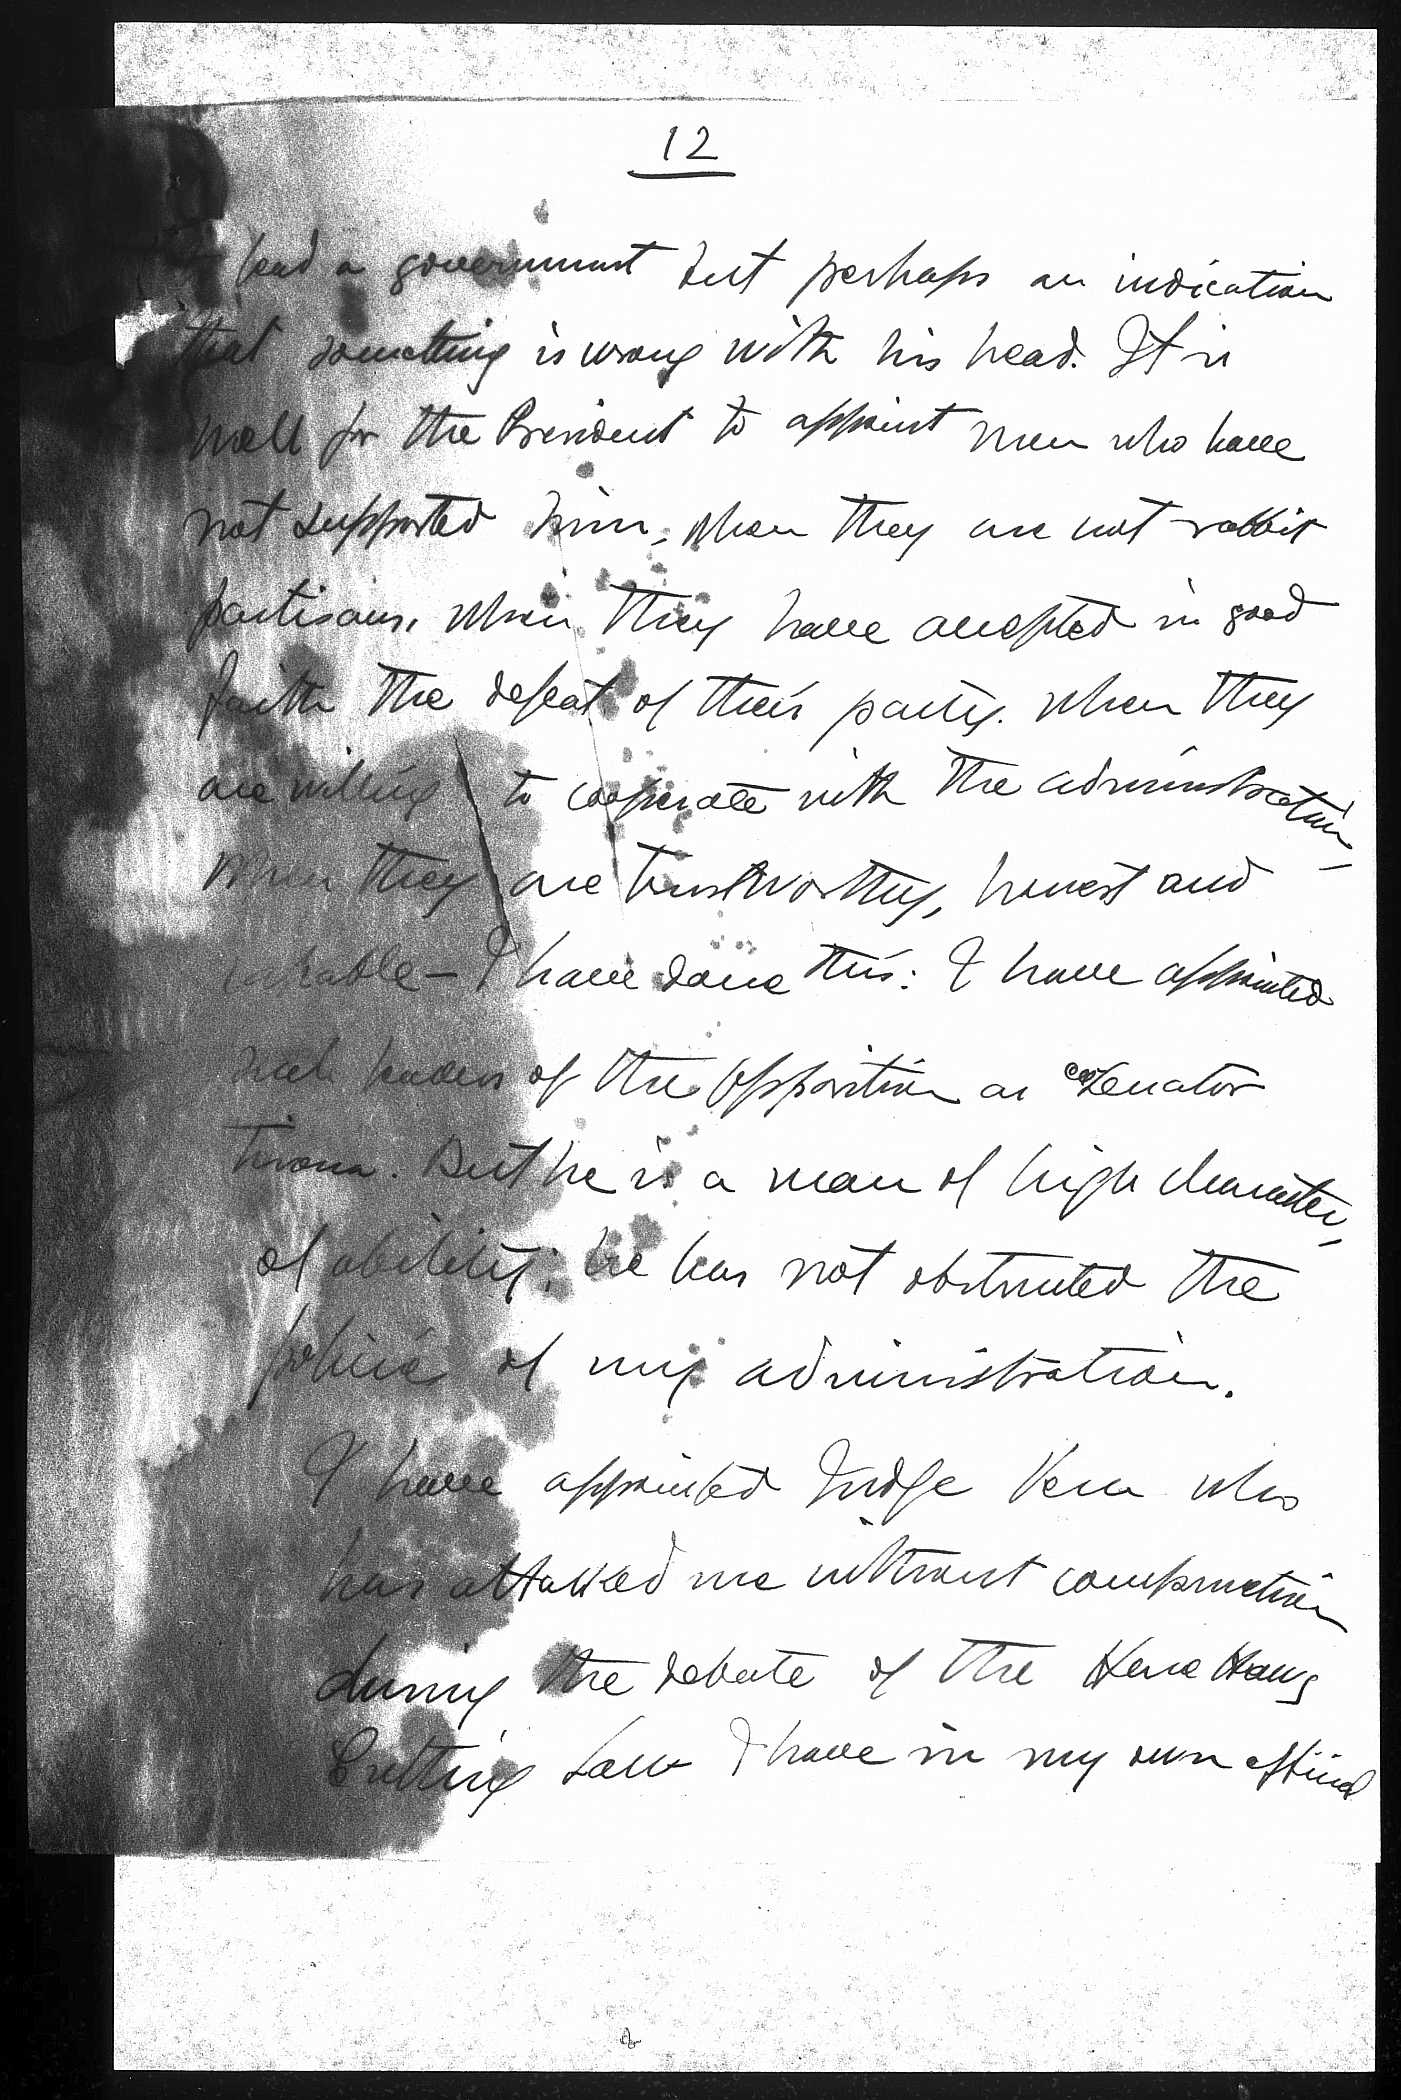 12
head a government but perhaps an indication
that something is wrong with his head. It is
well for the President to appoint men who have
not supported him, when they are not rabbit
partisans, when they have accepted in good
faith the defeat of their party. when they
are willing to cooperate with the administration,
when they are trustworthy, honest and
capable – I have done this: I have appointed
such leaders of the opposition as ex Senator
Tirona. But he is a man of high character,
of ability; he has not obstructed the
policie of my administration.
I have appointed Judge Vera who
has attacked me without compunction
during the debate of the Hare Haws
Cutting Law I have in my own official